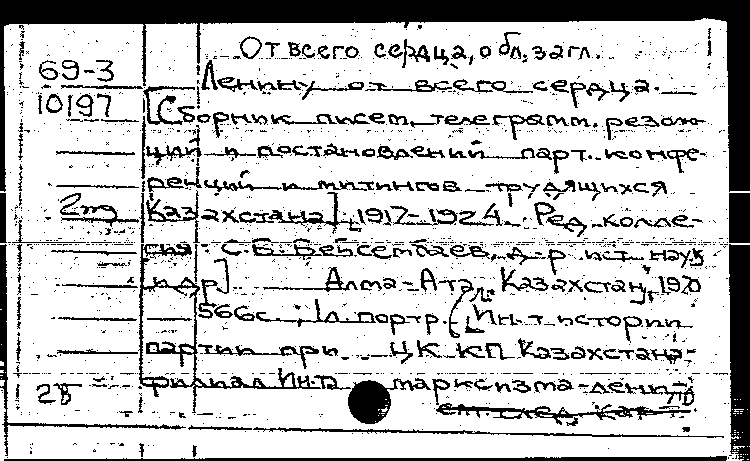 От всего сердца, обл. загл.
69-3
Ленину от всего сердца.
10197
[Сборник писем, телеграмм, резолю-
ций и постановлений парт. конфе-
ренций и митингов трудящихся
Казахстана], 1917-1924. Ред. колле-
гия: С.Б. Бейсембаев, д-р ист. наук
и др]. Алма-Ата, "Казахстан", 1970
566с.; 1л. портр. (Ин-т истории
партии при ЦК КП Казахстана-
филиал Ин-та марксизма-лени-
28
см. след. кар